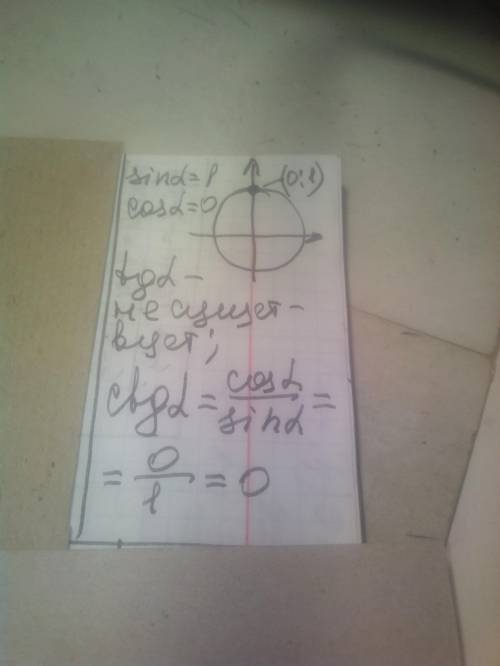 sinα = 1
(0;1)
cosα = 0
tgα –
не сущест-
вует;
ctgα = cosα/sinα =
= 0/1 = 0